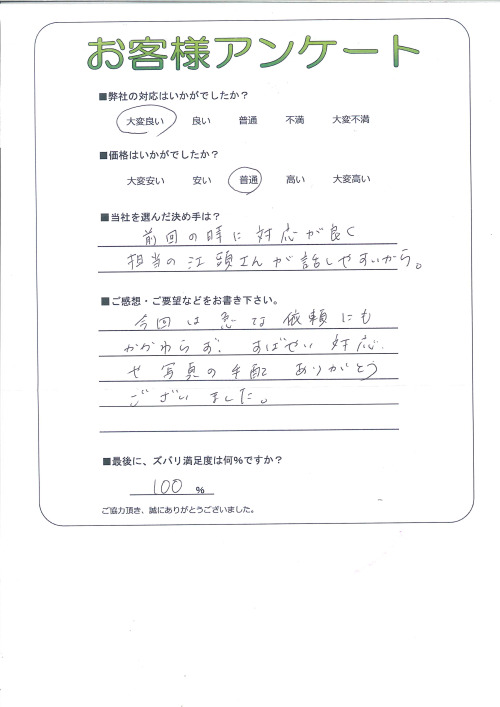 お客様アンケート
■弊社の対応はいかがでしたか？
大変良い　良い　普通　不満　大変不満
■価格はいかがでしたか？
大変安い　安い　普通　高い　大変高い
■当社を選んだ決め手は？
前回の時に対応が良く
担当の江頭さんが話しやすいから。
■ご感想・ご要望などをお書き下さい。
今回は急な依頼にも
かかわらず、すばやい対応
や写真の手配ありがとう
ございました。
■最後に、ズバリ満足度は何%ですか？
100 %
ご協力頂き、誠にありがとうございました。